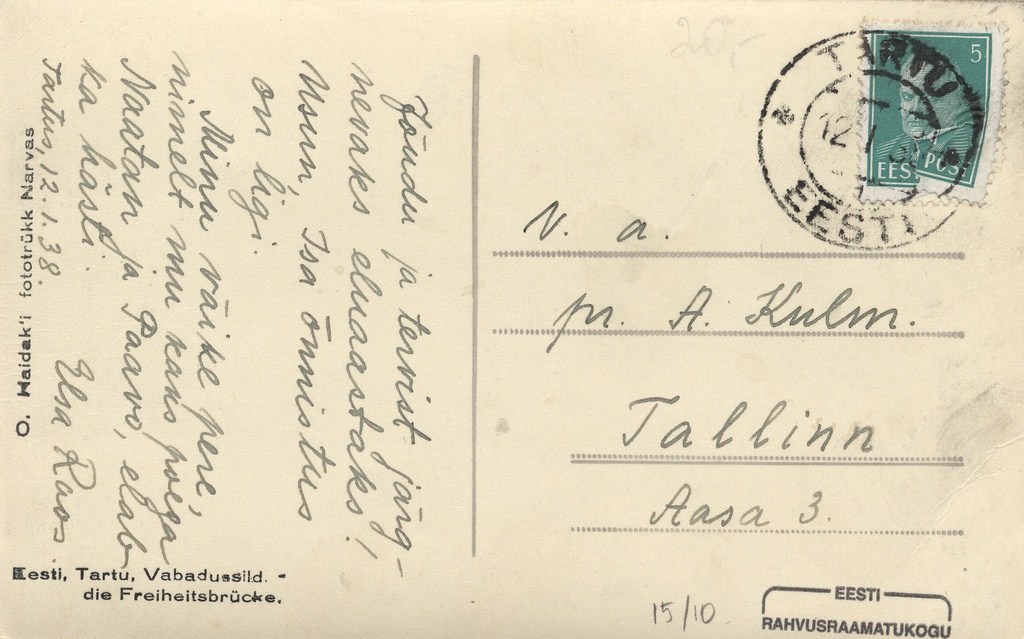 Jõudu ja tervist järg-
nevaks eluaastaks!
Usun, Isa õnnistus
on ligi.
Minu väike pere,
nimelt mu kaks poega
Naatan ja Paavo, elab
ka hästi.
Tartus, 12.1.38. Elsa Roos.
O. Haidak'i fototrükk Narvas
Eesti, Tartu, Vabadussild. -
die Freiheitsbrücke.
20,-
5
EESTI POST
TARTU
12 I 38
EESTI
N. a.
pr. A. Kulm.
Tallinn
Aasa 3.
15/10.
EESTI
RAHVUSRAAMATUKOGU